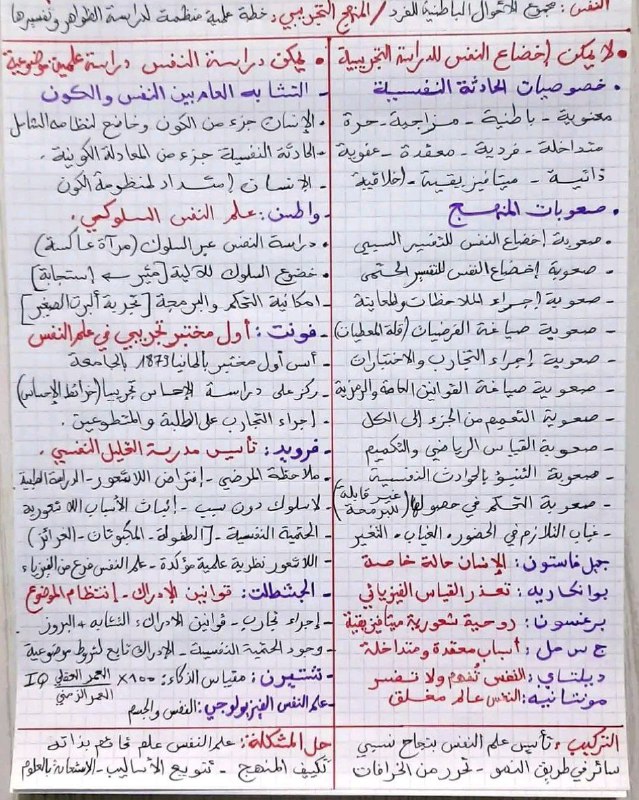 النفس: مجموع الأحوال الباطنية للفرد / المنهج التجريبي: خطة علمية منظمة لدراسة الظواهر وتفسيرها
• لا يمكن إخضاع النفس للدراسة التجريبية
• خصوصيات الحادثة النفسية
معنوية - باطنية - مزاجية - حرة
متداخلة - فردية - معقدة - عفوية
ذاتية - ميتافيزيقية - أخلاقية
• صعوبات المنهج
- صعوبة إخضاع النفس للتفسير السببي
- صعوبة إخضاع النفس للتفسير الحتمي
- صعوبة إجراء الملاحظات والمعاينة
- صعوبة صياغة الفرضيات (قلة المعطيات)
- صعوبة إجراء التجارب والاختبارات
- صعوبة صياغة القوانين العامة والرمزية
- صعوبة التعميم من الجزء إلى الكل
- صعوبة القياس الرياضي والتكميم
- صعوبة التنبؤ بالحوادث النفسية
- صعوبة التحكم في حصولها (غير قابلة للبرمجة)
- غياب التلازم في الحضور، الغياب، التغير
جبل غاستون: الإنسان حالة خاصة
بوانكاريه: تعذر القياس الفيزيائي
برغسون: روحية شعورية ميتافيزيقية
ج س مل: أسباب معقدة ومتداخلة
ديلتاي: النفس تُفهم ولا تفسر
مونتانييه: النفس عالم مغلق
التركيب: تأسيس علم النفس بنجاح نسبي
سائر في طريق النمو - تحرر من الخرافات
• يمكن دراسة النفس دراسة علمية موضوعية
- التشابه العام بين النفس والكون
• الإنسان جزء من الكون وخاضع لنظامه الشامل
- الحادثة النفسية جزء من المعادلة الكونية.
- الإنسان امتداد لمنظومة الكون
- واطسن: علم النفس السلوكي.
• دراسة النفس عبر السلوك (مرآة عاكسة)
• خضوع السلوك للآلية [مثير ← إستجابة]
- امكانية التحكم والبرمجة [تجربة ألبرت الصغير]
- فونت: أول مختبر تجريبي في علم النفس
- أسس أول مختبر بألمانيا 1879 بالجامعة
- ركز على دراسة الإحساس تجريبيا (خرائط الإحساس)
- إجراء التجارب على الطلبة والمتطوعين.
- فرويد: تأسيس مدرسة التحليل النفسي.
- ملاحظة المرضى - إفتراض اللاشعور - الدراسة الطبية
- لا سلوك دون سبب - إثبات الأسباب اللاشعورية
- الحتمية النفسية - [الطفولة - المكبوتات - الغرائز)
- اللاشعور نظرية علمية مؤكدة - علم النفس فرع من الفيزياء
- الجشطالت: قوانين الإدراك - إنتظام الموضوع
- إجراء تجارب - قوانين الإدراك: التشابه + البروز
- وجود الحتمية النفسية - الإدراك تابع لشروط موضوعية
- شتيرن: مقياس الذكاء: IQ العمر العقلي / العمر الزمني × 100
- علم النفس الفيزيولوجي: النفس والجسم
حل المشكلة: علم النفس علم قائم بذاته
تكييف المنهج - تنويع الأساليب - الاستعانة بالعلوم